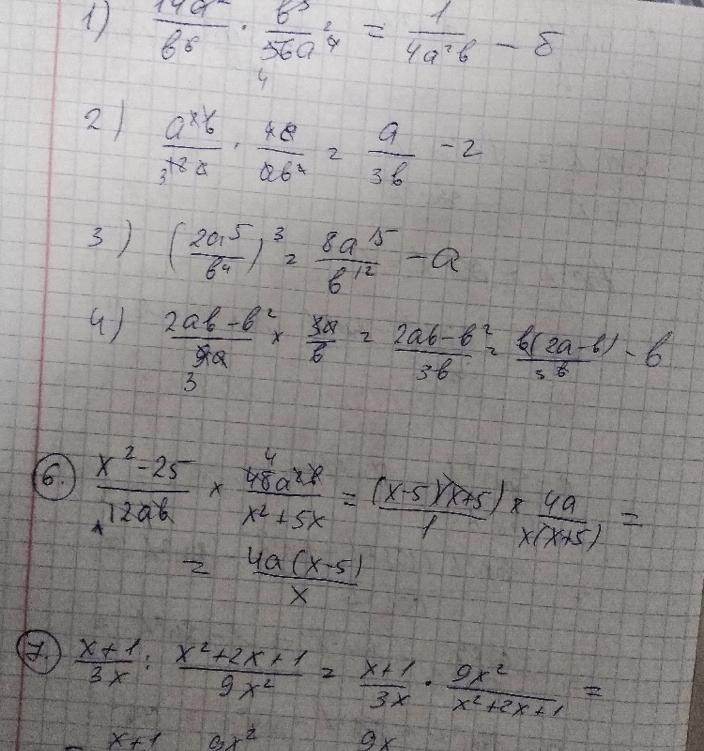 1) 14a / b⁶ · b⁵ / 56a⁴ = 1 / 4a²b − б
2) a²b / 12 · 4 / ab² = a / 3b − г
3) (2a⁵ / b⁴)³ = 8a¹⁵ / b¹² − а
4) 2ab − b² / 9a × 3a / b = 2ab − b² / 3b = b(2a − b) / 3b − в
6. x² − 25 / 12ab × 48a²b / x² + 5x = (x−5)(x+5) / 1 × 4a / x(x+5) =
= 4a(x−5) / x
7. x+1 / 3x : x²+2x+1 / 9x² = x+1 / 3x · 9x² / x²+2x+1 =
= x+1 9x² 9x